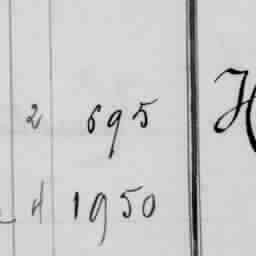 2 695 H
4 1950